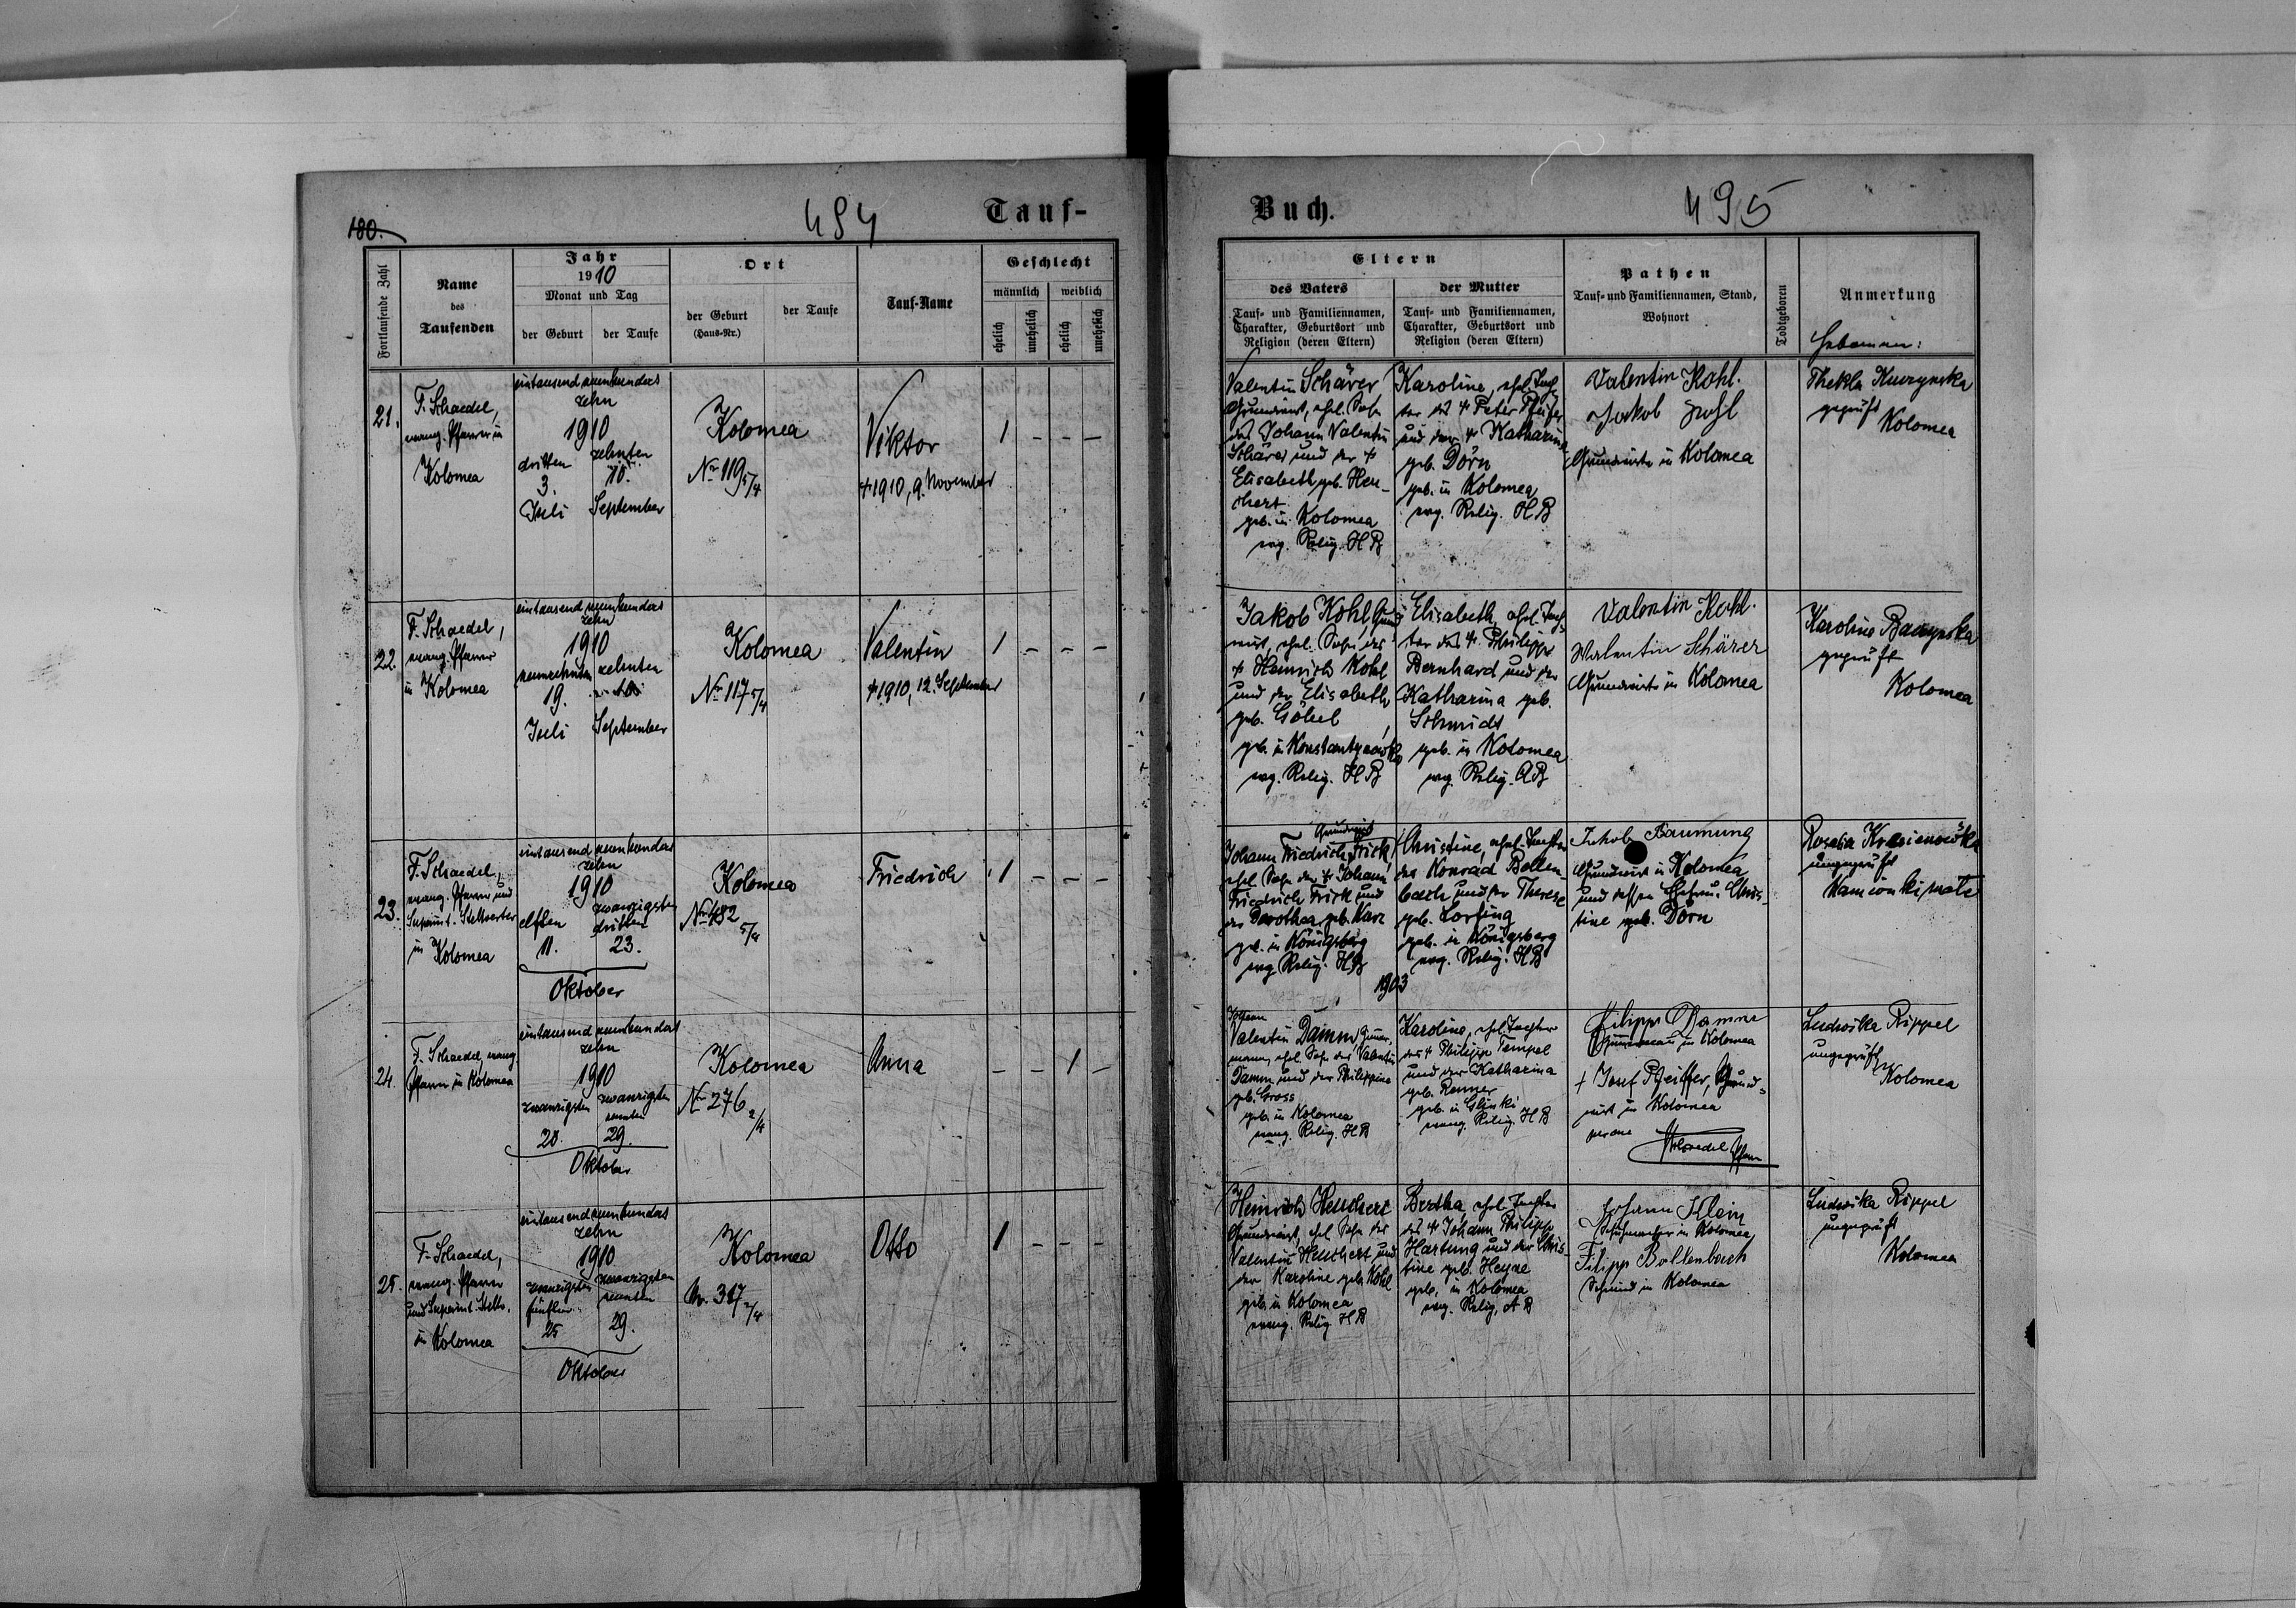 180.
494
Tauf-
Fortlaufende Zahl
Name
des
Taufenden
Jahr
1910
Monat und Tag
der Geburt
der Taufe
Ort
der Geburt
(Haus-Nr.)
der Taufe
Tauf-Name
Geschlecht
männlich
weiblich
ehelich
unehelich
ehelich
unehelich
21.
F. Schaedel,
evang. Pfarrer in
Kolomea
eintausend neunhundert
zehn
1910
dritten
3.
Juli
zehnten
10.
September
Kolomea
No 119 5/4
Viktor
+ 1910, 9. November
1 - - -
22.
F. Schaedel,
evang. Pfarrer
in Kolomea
eintausend neunhundert
zehn
1910
neunzehnten
19.
Juli
zehnten
10.
September
Kolomea
No 117 5/4
Valentin
+ 1910, 12. September
1 - - -
23.
F. Schaedel,
evang. Pfarrer und
Superint. Stellverter
in Kolomea
eintausend neunhundert
zehn
1910
elften
11.
zwanzigsten
dritten
23.
Oktober
Kolomea
No 482
5/4
Friedrich
1 - - -
24.
F. Schaedel, evang
Pfarrer in Kolomea
eintausend neunhundert
zehn
1910
zwanzigsten
20.
zwanzigsten
neunten
29.
Oktober
Kolomea
No 276 2/4
Anna
- - 1 -
25.
F. Schaedel,
evang. Pfarrer
und Superint. Stellv.
in Kolomea
eintausend neunhundert
zehn
1910
zwanzigsten
fünften
25
zwanzigsten
neunten
29.
Oktober
Kolomea
Nr. 317 2/4
Otto
1 - - -
Buch.
495
Eltern
des Vaters
Tauf- und Familiennamen,
Charakter, Geburtsort und
Religion (deren Eltern)
der Mutter
Tauf- und Familiennamen,
Charakter, Geburtsort und
Religion (deren Eltern)
Pathen
Tauf- und Familiennamen, Stand,
Wohnort
Todtgeboren
Anmerkung
Hebammen:
Valentin Schärer
Grundwirt, ehel. Sohn
des Johann Valentin
Schärer und der +
Elisabeth geb. Heu-
chert
geb. in Kolomea
evg. Relig. HB
Karoline, ehel. Toch-
ter des + Peter Pfeifer
und der + Katharina
geb. Dörn
geb. in Kolomea
evg. Relig. HB
Valentin Kohl.
Jakob Kohl
Grundwirte in Kolomea
Thekla Kuczynska
geprüft
Kolomea
Jakob Kohl Grund-
wirt, ehel. Sohn des
+ Heinrich Kohl
und der Elisabeth
geb. Göbel
geb. in Konstantynówka
evg. Relig. HB
Elisabeth, ehel. Toch-
ter des + Philipp
Bernhard und der
Katharina geb.
Schmidt
geb. in Kolomea
evg. Relig. AB
Valentin Kohl.
Walentin Schärer
Grundwirte in Kolomea
Karoline Baczynska
geprüft
Kolomea
Grundwirt
Johann Friedrich Frick,
ehel. Sohn des + Johann
Friedrich Frick und
der Dorothea geb. Karz
geb. in Königsberg
evg. Relig. HB
1903
Christine, ehel. Tochter
des Konrad Bollen-
bach und der Therese
geb. Lorfing
geb. in Königsberg
evg. Relig. HB
Jakob Baumung
Grundwirt in Kolomea
und dessen Ehefrau Chris-
tine geb. Dorn
Rosalia
ungeprüft
Johann
Valentin Damm,
ehel. Sohn des Valentin
Damm und der Philippine
geb. Gross
geb. in Kolomea
evang. Relig. HB
Karoline, ehel. Tochter
des + Philipp Tempel
und der Katharina
geb. Renner
geb. in Glinki
evang. Relig. HB
Filipp Damm
in Kolomea
+ Josef Pfeiffer, Grund-
wirt in Kolomea
Schaedel Pfarrer
Ludwika Rippel
ungeprüft
Kolomea
Heinrich Heuchert
Grundwirt, ehel. Sohn des
Valentin Heuchert und
der Karoline geb. Kohl
geb. in Kolomea
evang. Relig HB
Bertha, ehel. Tochter
des + Johann Philipp
Hartung und der Chris-
tine geb. Heyne
geb. in Kolomea
evg. Relig. AB
Johann Klein
Schuhmacher in Kolomea
Filipp Bollenbach
Schmied in Kolomea
Ludwika Rippel
ungeprüft
Kolomea